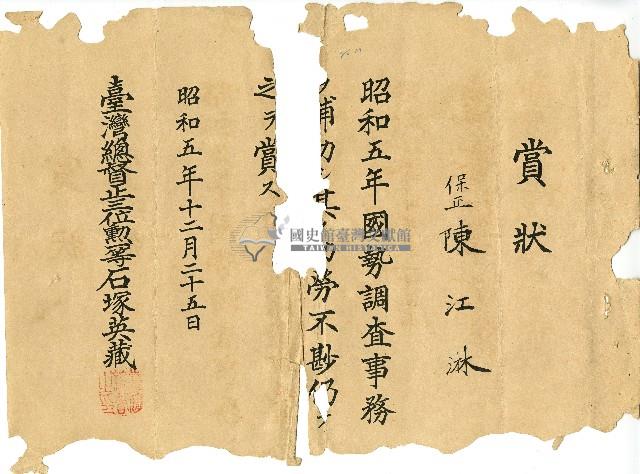 賞狀
保正 陳江淋
昭和五年國勢調査事務
ヲ補助シ其 勞不尠仍
之ヲ賞ス
昭和五年十二月二十五日
臺灣總督正三位勳等石塚英藏
國史館臺灣文獻館
TAIWAN HISTORICA